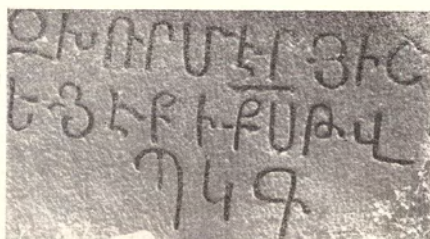 ԶԽՌՐՄԷՐՅԻՇ
ԵՑԷՔԻՔՍԹՎ
ՊԿԳ